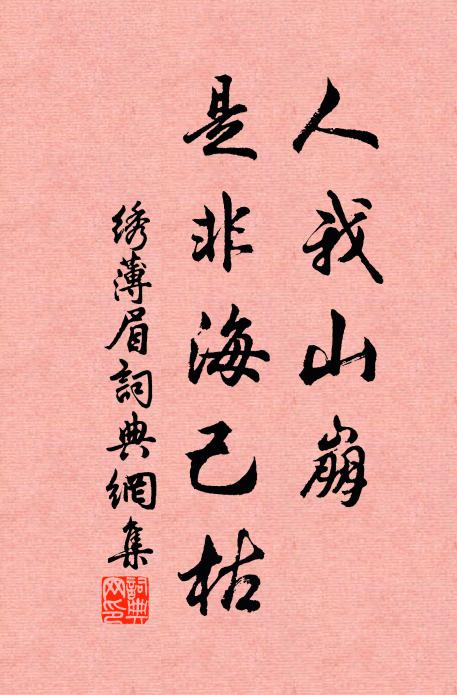 人我山崩
是非海己枯
绣薄眉詞典網集
詞典网印